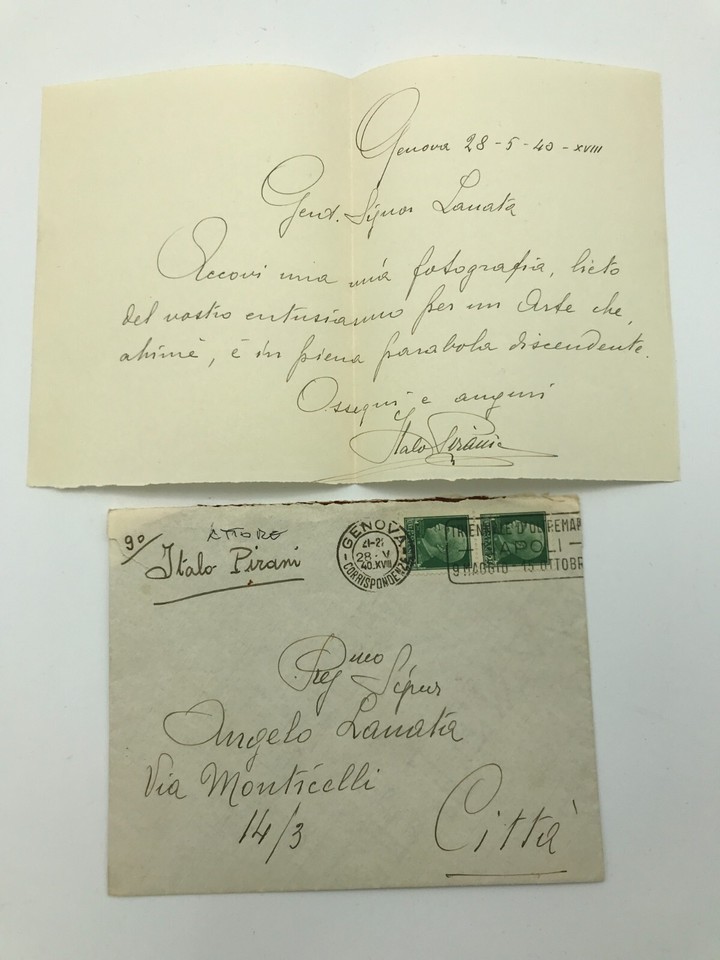 Genova 28-5-40-XVIII
Gent. Signor Lanata
Eccovi una mia fotografia, lieto
del vostro entusiasmo per un Arte che,
ahimè, è in piena parabola discendente.
Ossequi e auguri
Italo Pirani
9°/
ATTORE
Italo Pirani
GENOVA
21-22
28·V
40.XVIII
CORRISPONDENZE
TRIENNALE D'OLTREMARE
NAPOLI -
9 MAGGIO - 15 OTTOBRE
Preg mo Signor
Angelo Lanata
Via Monticelli
14/3
Città